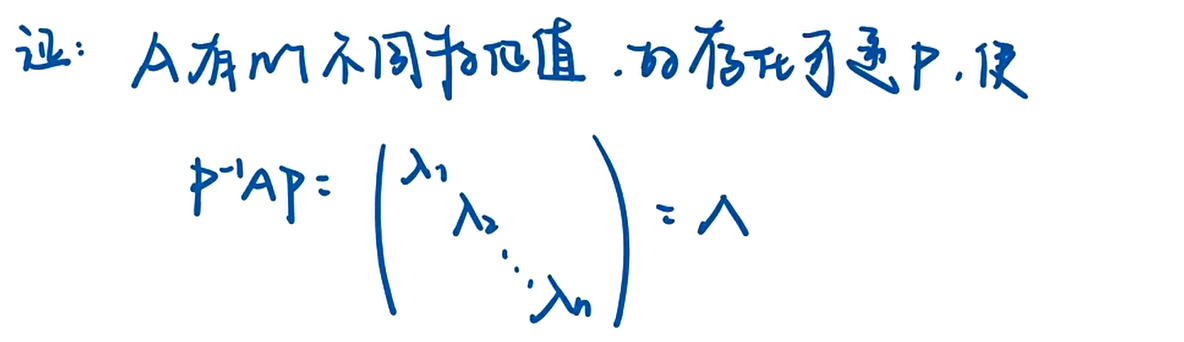 证: A有n个不同特征值.故存在可逆P.使
P⁻¹AP= (λ₁ λ₂ ⋱ λₙ) = Λ